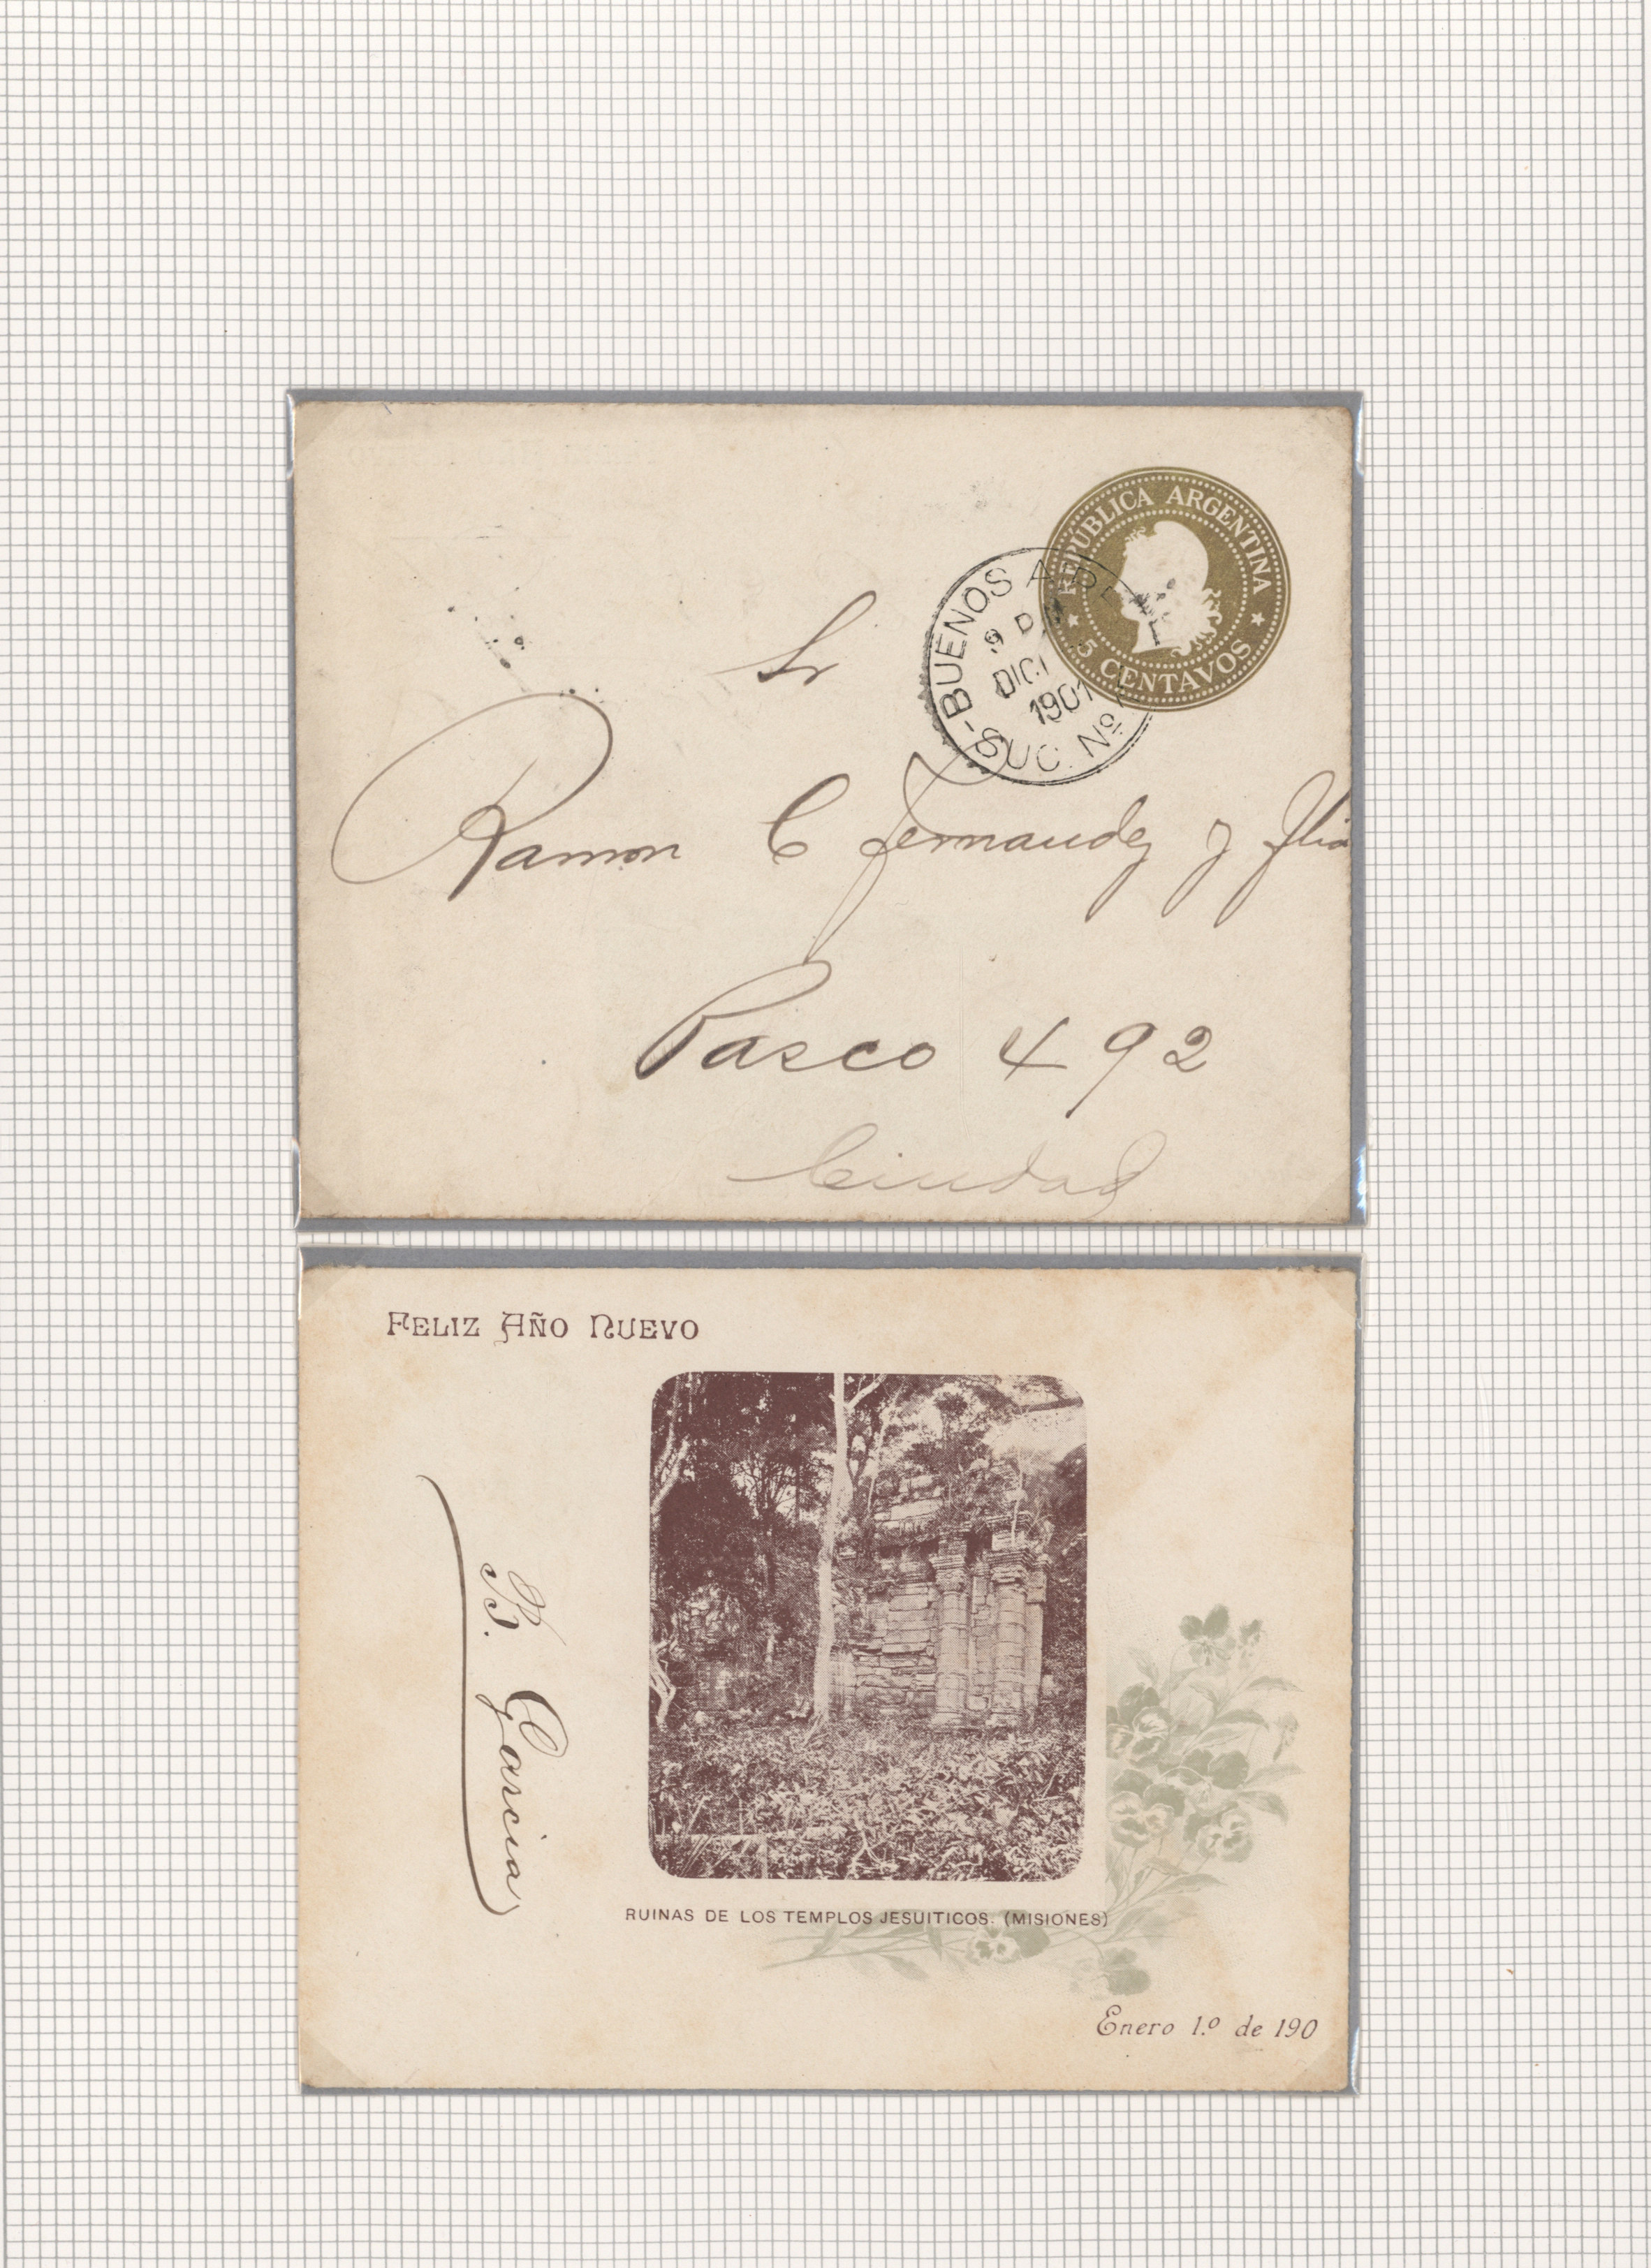 REPÚBLICA ARGENTINA
5 CENTAVOS
BUENOS AIRES
DIC 1
1901
SUC. Nº
Sr
Ramon C Fernandez y Flia
Pasco 492
Ciudad
FELIZ AÑO NUEVO
B. Garcia
RUINAS DE LOS TEMPLOS JESUITICOS. (MISIONES)
Enero 1.º de 190